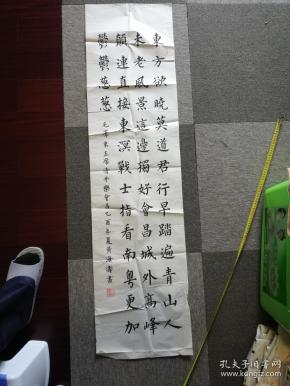 東方欲曉莫道君行早踏遍青山人
未老風景這邊獨好會昌城外高峰
顛連直接東溟戰士指看南粵更加
鬱鬱蔥蔥
孔夫子旧书网